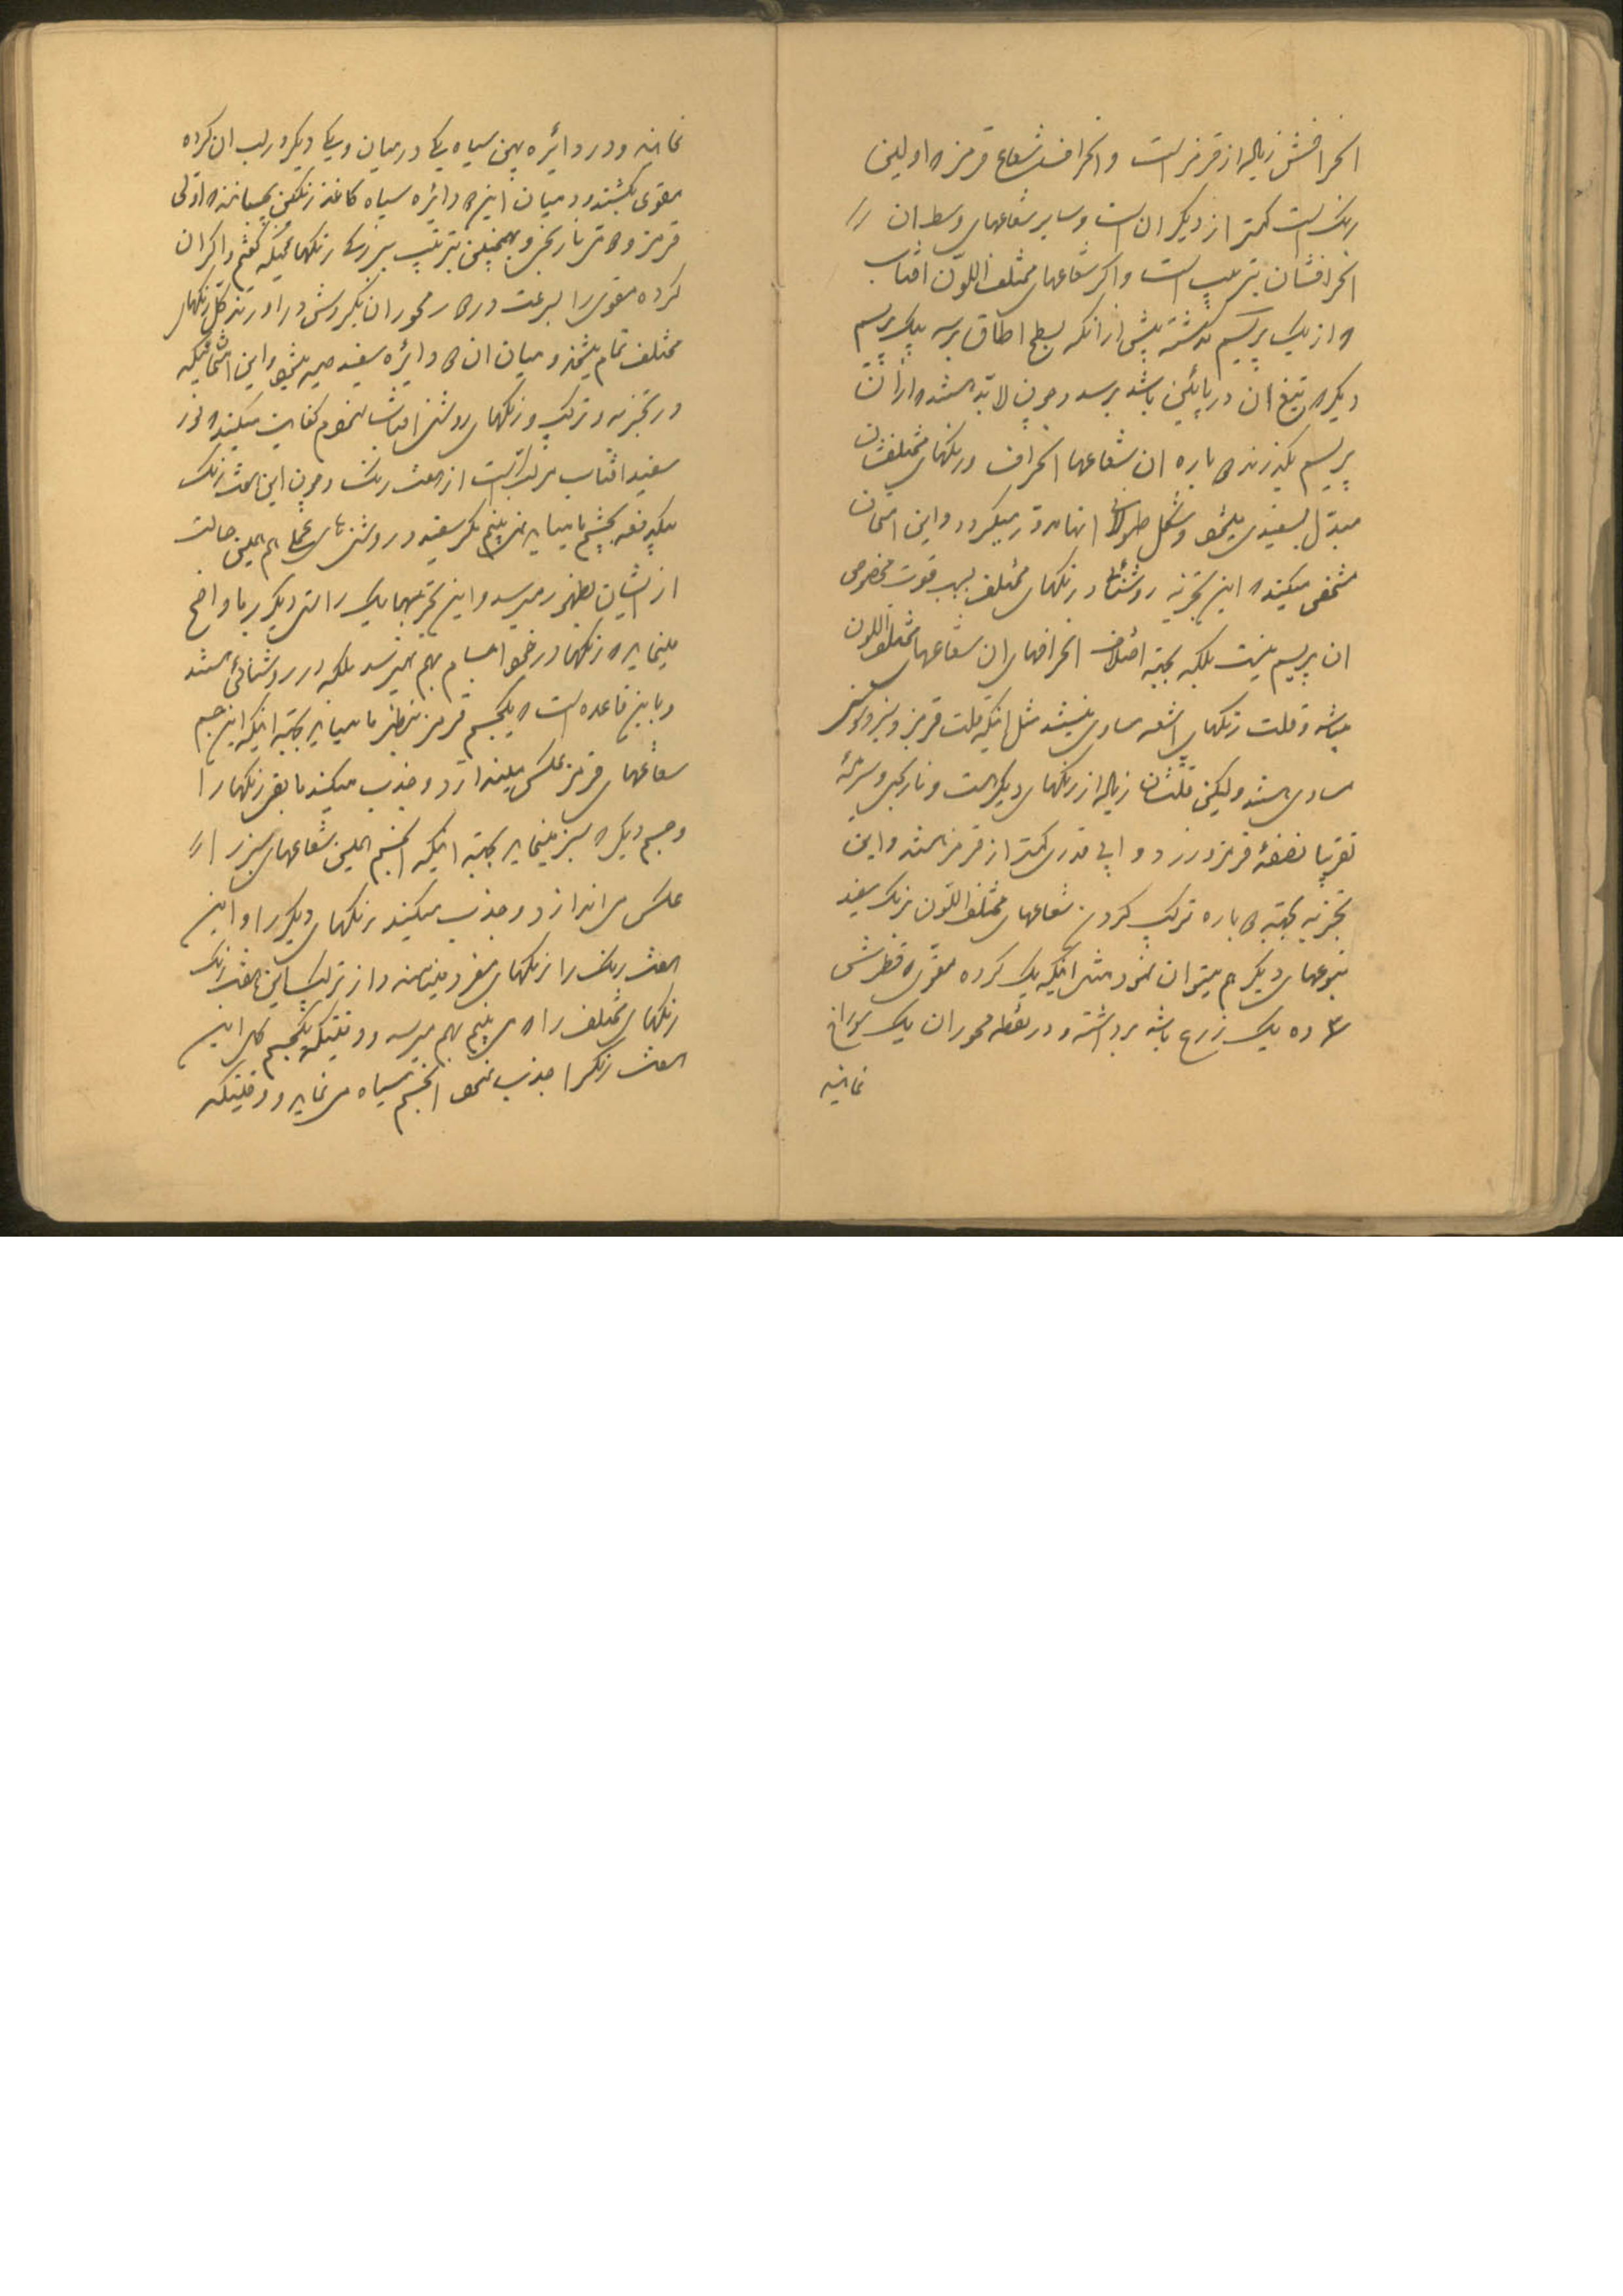 انحرافش زیاده از قرمز است و انحراف شعاع قرمز که اولین
رنگ است کمتر از دیگران است و سایر شعاعهای وسط ان را
انحرافشان بترتیب است و اگر شعاعهای مختلف اللون افتاب
که از یک پریسم گذشته پیش از انکه بسطح اطاق برسد بیک پریسم
دیگر که تیغ ان در پائین باشد برسد و چون لابد هستند که از ان
پریسم بگذرند دوباره ان شعاعها انحراف و رنگهای مختلفشان
مبدل بسفیدی میشود و شکل طولانی انها مدور میگردد و این امتحان
مشخص میکند که این تجزیه روشنائی در رنگهای مختلف بسبب قوت مخصوصی
ان پریسم نیست بلکه بجهته اختلاف انحرافهای ان شعاعهای مختلف اللون
میباشد و قلت رنگهای اشعه مساوی نیستند مثل اینکه قلت قرمز و سبز و بنفش
مساوی هستند ولیکن قلتشان زیاده از رنگهای دیگر است و نارنجی و سرمهٔ
تقریبا نصفهٔ قرمز و زرد و ابی قدری کمتر از قرمز هستند و این
تجزیه بجهته دوباره ترکیب کردن شعاعهای مختلف اللون برنگ سفید
بنوعهای دیگر هم میتوان نمود مثل اینکه یک گرده مقوی که قطرش
۳ ده یک زرع باشد برداشته و در نقطه محور ان یک سوراخ
نمایند
نمایند و دو دائره پهن سیاه یکی در میان و یکی دیگر در لب ان گرده
مقوی بکشند و در میان این دو دائره سیاه کاغذ رنگین بچسبانند که اولی
قرمز و دومی نارنجی و بهمچنین بترتیب بزرگی رنگها چنانکه گفتم و اگر ان
گرده مقوی را بسرعت در دور محور ان بگردش در اورند کل رنگهای
مختلف تمام میشوند و میان ان دو دائره سفید دیده میشود و این امتحانیکه
در تجزیه و ترکیب و رنگهای روشنی افتاب نمودیم کفایت میکند که نور
سفید افتاب مرکب است از هفت رنگ و چون این هفت رنگ
بیکدفعه بچشم ما میاید نمی بینیم مگر سفید و روشنیهای عملی هم همین حالت
از ایشان بظهور میرسد و این تجربتها یک راستی دیگر بما واضح
مینماید که رنگها در خود اجسام بهم نمیرسند بلکه در روشنائی هستند
و باین قاعده است که یکجسم قرمز بنظر ما میاید بجهته اینکه این جسم
شعاعهای قرمز عکس میاندازد و جذب میکند مابقی رنگها را
و جسم دیگر که سبز مینماید بجهته اینکه انجسم همین شعاعهای سبز را
عکس می اندازد و جذب میکند رنگهای دیگر را و این
هفت رنگ را رنگهای مفرد مینامند و از ترکیب این هفت رنگ
رنگهای مختلف را که می بینیم بهم میرسد و وقتیکه یکجسم کل این
هفت رنگرا جذب نمود انجسم سیاه می نماید و وقتیکه